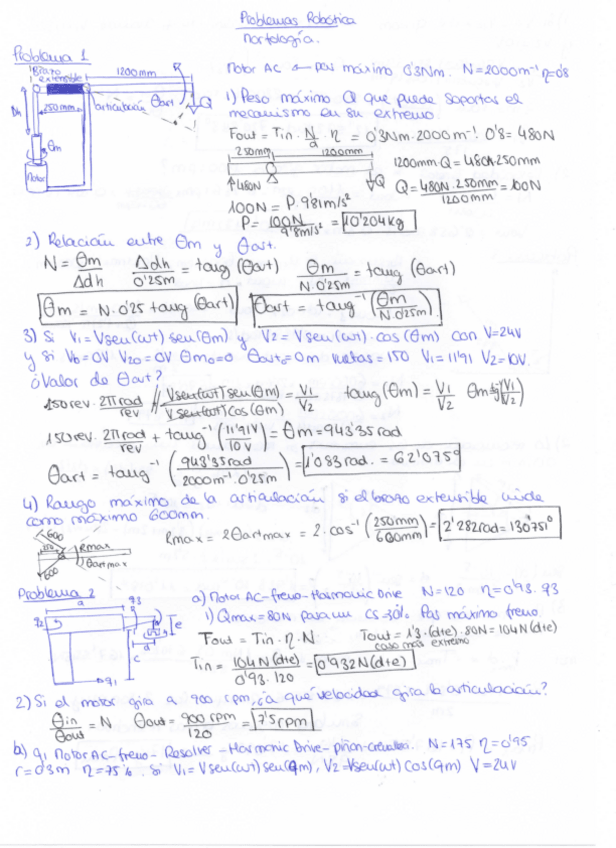 Problemas Robótica
Morfología.
Problema 1
Brazo extensible
1200mm
250mm
articulación θart
Q
Δh
θm
Motor
Motor AC ← par máximo 0'3Nm. N=2000m⁻¹ η=0'8
1) Peso máximo Q que puede soportar el
mecanismo en su extremo
Fout = Tin · N/a · η = 0'3Nm · 2000m⁻¹ · 0'8 = 480N
250mm 1200mm
↑480N ↓Q
1200mm·Q = 480N·250mm
Q = 480N·250mm / 1200mm = 100N
100N = P·9'81m/s²
P = 100N / 9'8m/s² = 10'204kg
2) Relación entre θm y θart.
N = θm/Δdh Δdh/0'25m = tang(θart) θm/N·0'25m = tang(θart)
θm = N·0'25 tang(θart) θart = tang⁻¹(θm/N·0'25m)
3) Si V1 = Vsen(wt)sen(θm) y V2 = Vsen(wt)·cos(θm) con V=24V
y si V10=0V V20=0V θm0=0 θart0=0m vueltas=150 V1=11'91 V2=10V.
¿Valor de θart?
150rev · 2πrad/rev // Vsen(wt)sen(θm) / Vsen(wt)cos(θm) = V1/V2 tang(θm) = V1/V2 θm tg⁻¹(V1/V2)
150rev · 2πrad/rev + tang⁻¹(11'91V/10V) = θm = 943'35rad
θart = tang⁻¹(943'35rad / 2000m⁻¹·0'25m) = 1'083rad. = 62'075º
4) Rango máximo de la articulación si el brazo extensible mide
como máximo 600mm.
600
250
600
Rmax
θartmax
Rmax = 2θartmax = 2·cos⁻¹(250mm/600mm) = 2'282rad = 130'751º
Problema 2
a
q3
q2
e
d
c
q1
a) Motor AC-freno-Harmonic Drive N=120 η=0'93. q3
1) Qmax=80N para un CS=30% Par máximo freno.
Fout = Tin·η·N Tout = 1'3·(d+e)·80N = 104N(d+e)
caso más extremo
Tin = 104N(d+e) / 0'93·120 = 0'932N(d+e)
2) Si el motor gira a 900 rpm, ¿a qué velocidad gira la articulación?
θin/θout = N θout = 900rpm/120 = 7'5rpm
b) q1 Motor AC-freno-Resolver-Harmonic Drive-piñon-cremallera. N=175 η=0'95
r=0'3m η=75%. Si V1=Vsen(wt)sen(qm), V2=Vsen(wt)cos(qm) V=24V